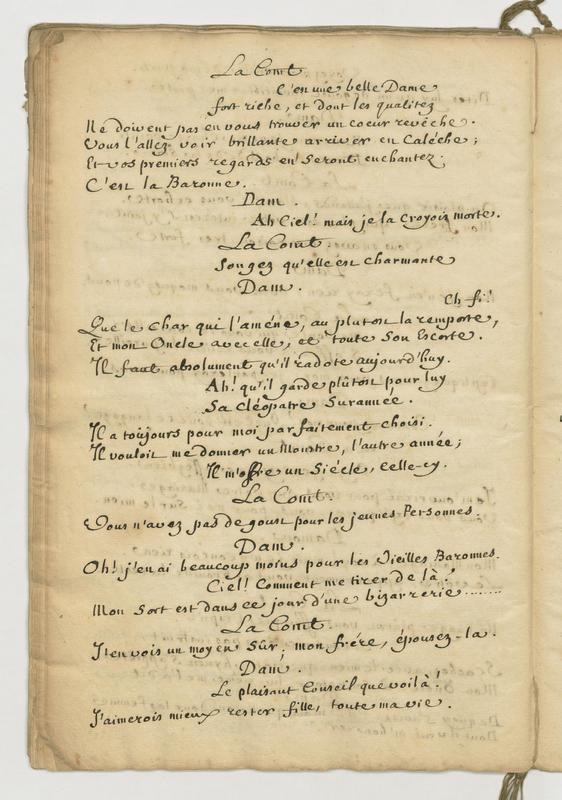 La Comt.
C'en une belle Dame
fort riche, et dont les qualitez
Ne doivent pas en vous trouver un coeur revêche.
Vous l'allez voir brillante arriver en Caléche;
Et vos premiers regards en Seront enchantez.
C'est la Baronne.
Dam.
Ah Ciel! mais je la croyois morte.
La Comt.
Songez qu'elle est charmante
Dam.
Eh fi!
Que le Char qui l'améne, au plutost la remporte,
Et mon Oncle avec elle, et toute Son Escorte.
Il faut absolument qu'il radote aujourd'huy.
Ah! qu'il garde plûtost pour luy
Sa Cléopatre Surannée.
Il a toûjours pour moi parfaitement choisi.
Il vouloit me donner un Monstre, l'autre année;
Il m'offre un Siécle, celle-cy.
La Comt.
Vous n'avez pas de goust pour les jeunes Personnes.
Dam.
Oh! j'en ai beaucoup moins pour les Vieilles Baronnes.
Ciel! Comment me tirer de là!
Mon Sort est dans ce jour d'une bizarrerie........
La Comt.
J'en vois un moyen Sûr; mon frére, épousez-la.
Dam.
Le plaisant Conseil que voilà!
J'aimerois mieux rester fille, toute ma vie.